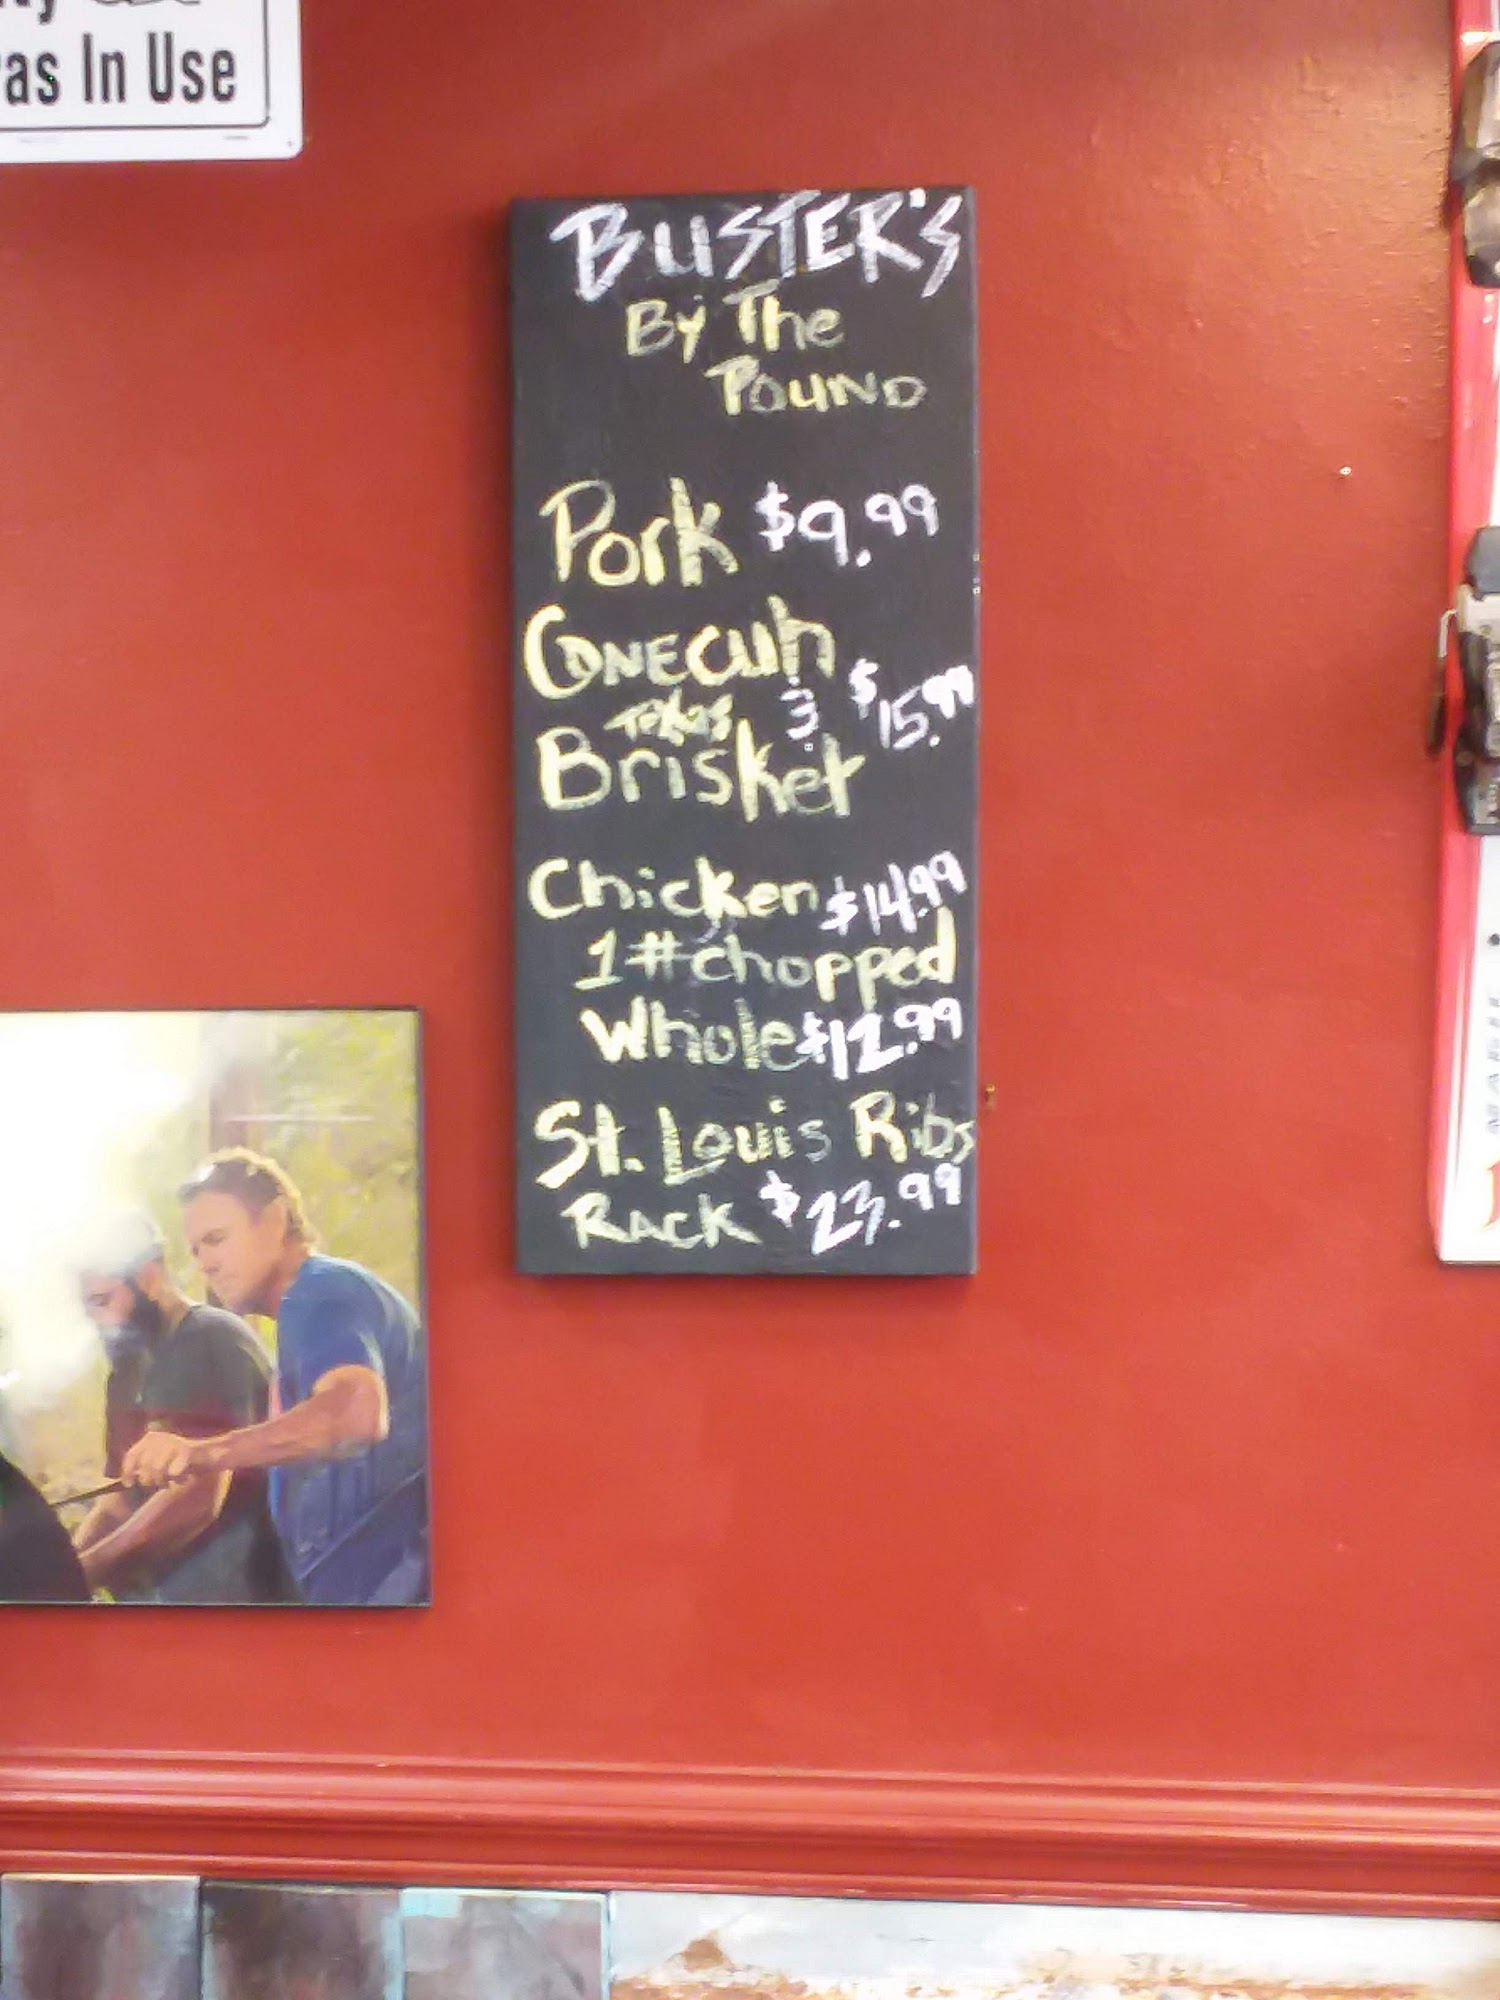 as In Use
BUSTER'S
By The
POUND
Pork $9.99
CONECUh
TEXAS & $15.99
Brisket
Chicken $14.99
1# chopped
Whole $12.99
St. Louis Ribs
RACK $23.99